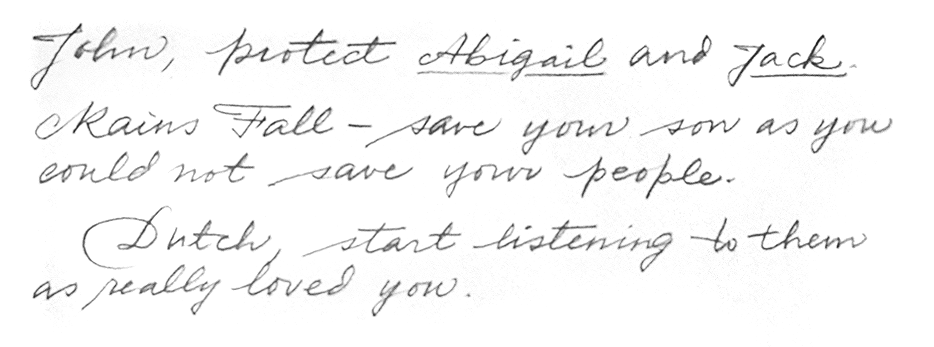 John, protect Abigail and Jack.
Rains Fall - save your son as you
could not save your people.
Dutch, start listening to them
as really loved you.